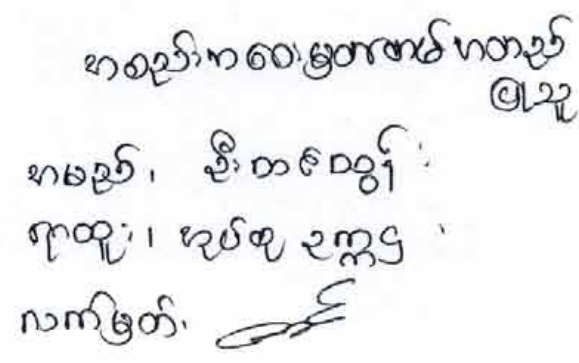 အစည်းအဝေးမှတ်တမ်းတည်
ပြုသူ
အမည်၊ ဦး
ရာထူး၊ အုပ်စု ဥက္ကဋ္ဌ
လက်မှတ်၊